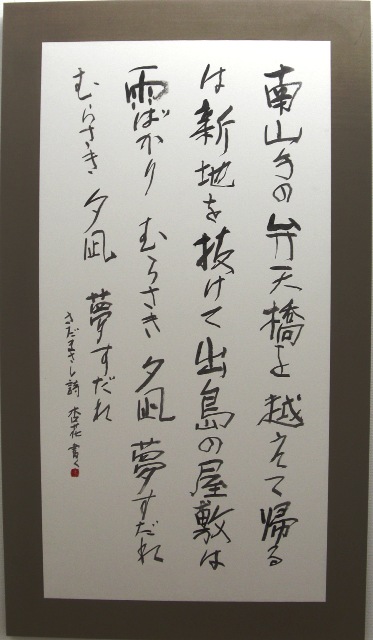 南山手の弁天橋を越えて帰る
は新地を抜けて出島の屋敷は
雨ばかり むらさき 夕凪 夢すだれ
むらさき 夕凪 夢すだれ
さだまさし詩 杏花書く